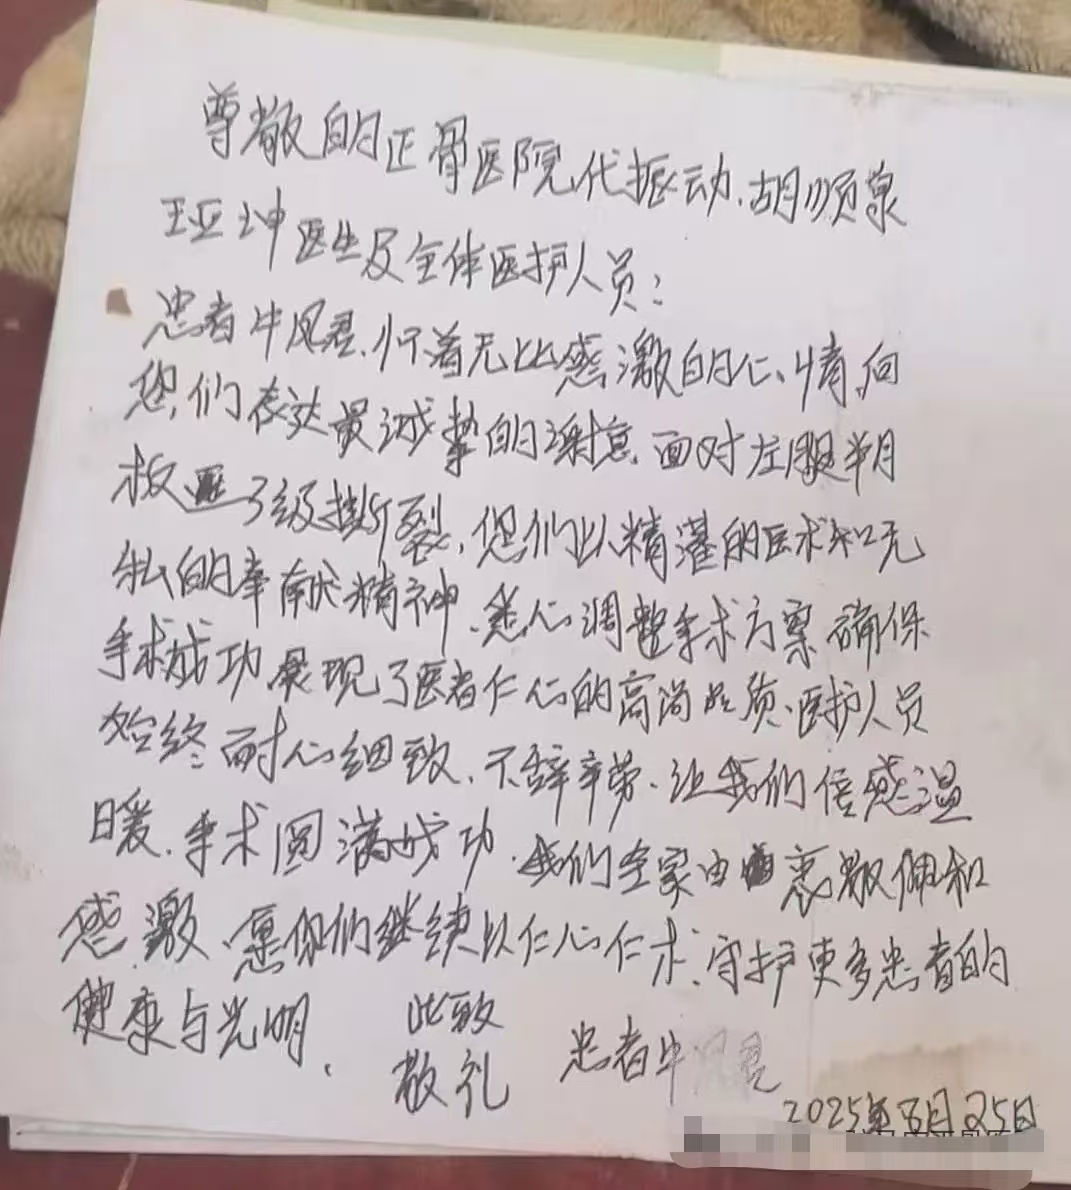 尊敬的正骨医院代振动、胡顺泉
王亚坤医生及全体医护人员:
患者牛凤君、怀着无比感激的心情,向
您们表达最诚挚的谢意、面对左腿半月
板了级撕裂,您们以精湛的医术和无
私的奉献精神、悉心调整手术方案确保
手术成功展现了医者仁心的高尚品质、医护人员
始终耐心细致、不辞辛劳、让我们倍感温
暖、手术圆满成功、我们全家由衷敬佩和
感激、愿你们继续以仁心仁术、守护更多患者的
健康与光明、
此致
敬礼
患者牛凤君
2025年8月25日